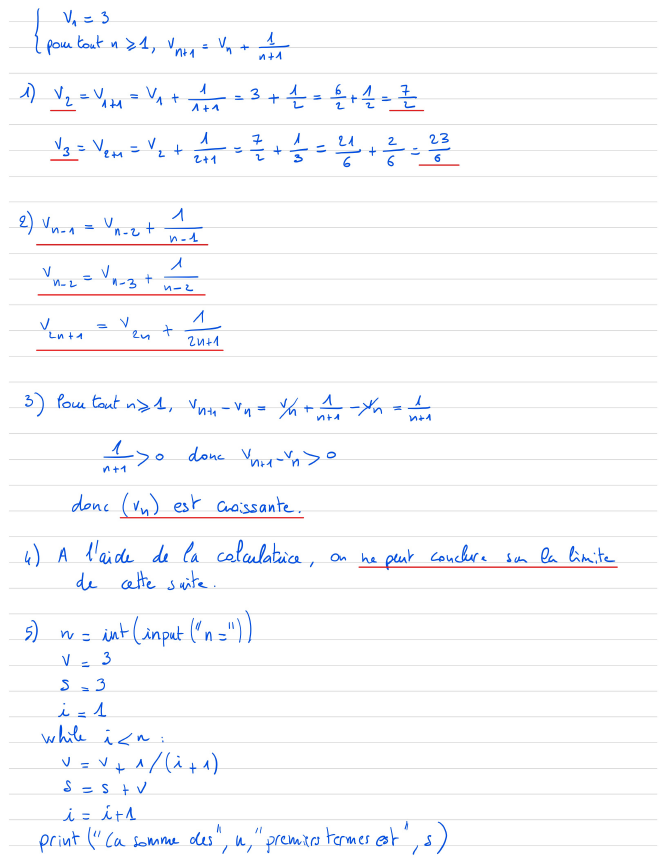 { V₁ = 3
pour tout n ⩾ 1, Vₙ₊₁ = Vₙ + 1/(n+1)
1) V₂ = V₁₊₁ = V₁ + 1/(1+1) = 3 + 1/2 = 6/2 + 1/2 = 7/2
V₃ = V₂₊₁ = V₂ + 1/(2+1) = 7/2 + 1/3 = 21/6 + 2/6 = 23/6
2) Vₙ₋₁ = Vₙ₋₂ + 1/(n-1)
Vₙ₋₂ = Vₙ₋₃ + 1/(n-2)
V₂ₙ₊₁ = V₂ₙ + 1/(2n+1)
3) Pour tout n ⩾ 1, Vₙ₊₁ - Vₙ = Vₙ + 1/(n+1) - Vₙ = 1/(n+1)
1/(n+1) > 0 donc Vₙ₊₁ - Vₙ > 0
donc (Vₙ) est croissante.
4) A l'aide de la calculatrice, on ne peut conclure sur la limite
de cette suite.
5) n = int(input("n ="))
v = 3
s = 3
i = 1
while i < n :
v = v + 1/(i + 1)
s = s + v
i = i+1
print ("La somme des", n, "premiers termes est", s)